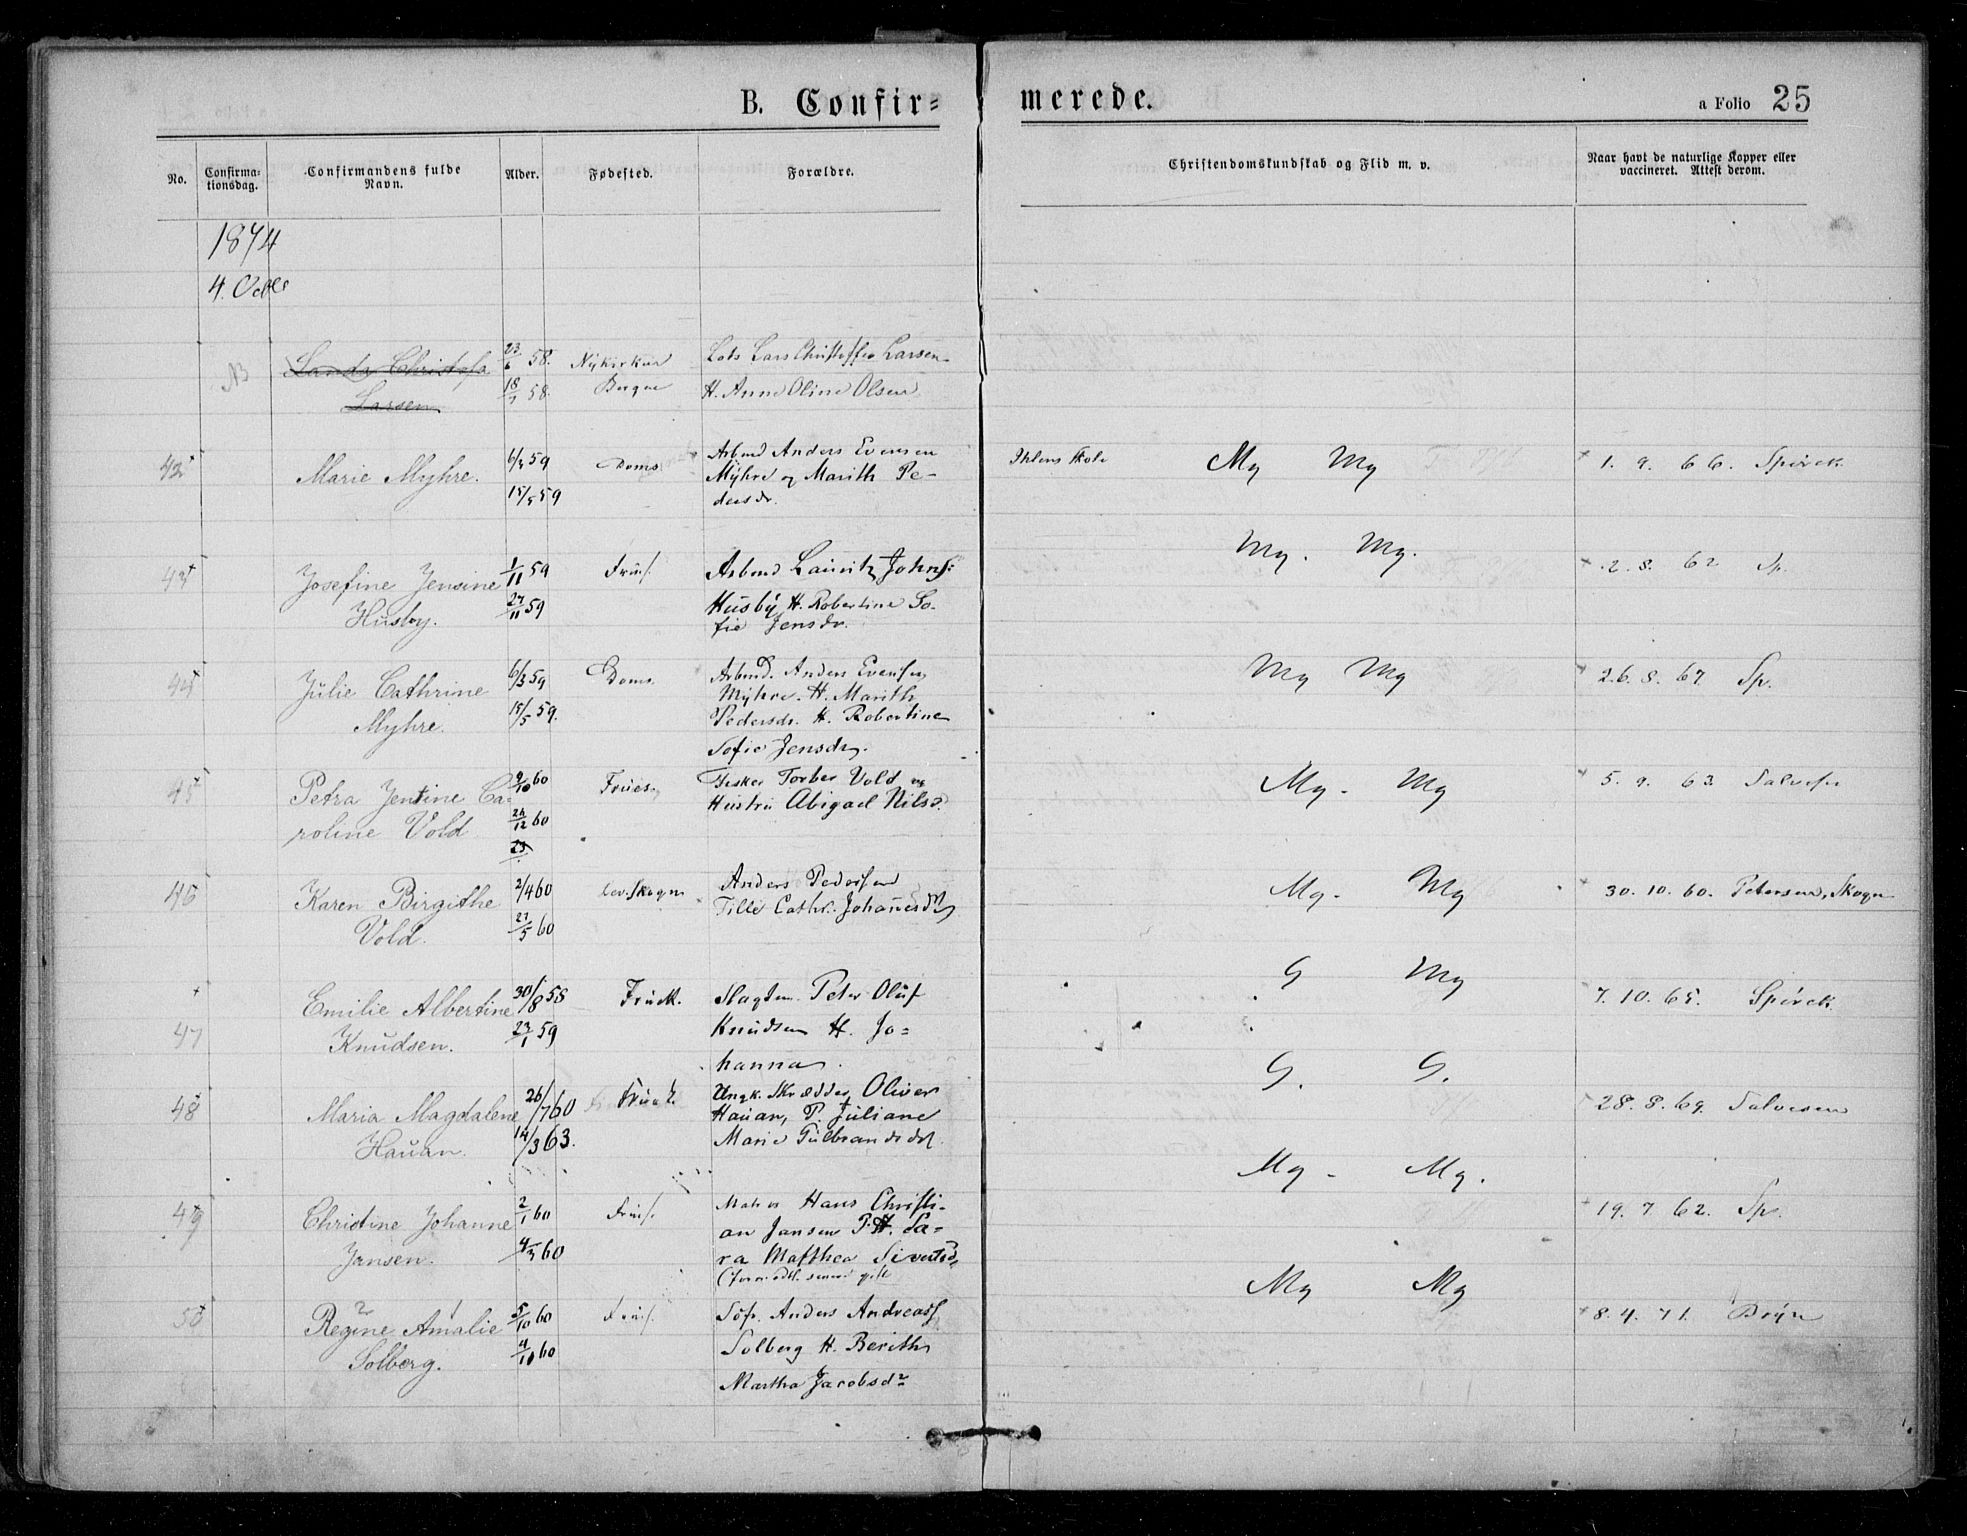 B. Confir=
merede.
a Folio 25
No.
Confirma-
tionsdag.
Confirmandens fulde
Navn.
Alder.
Fødested.
Forældre.
Christendomskundskab og Flid m. v.
Naar havt de naturlige Kopper eller
vaccineret. Attest derom.
1874
4. Octbr
NB
Christofa
Larsen
23/6 58.
18/7 58.
Nykirken
Bergen
Lods Lars Christoffer Larsen
H. Anne Oline Olsen
42
Marie Myhre.
6/3 59
15/5 59
Doms
Arbmd Anders Evensen
Myhre og Marith Pe-
dersdr.
Ihlens Skole
Mg Mg
1. 9. 66. Spørck.
43
Josefine Jensine
Husby.
1/11 59
27/11 59
Fruf.
Arbmd Lauritz Johns:
Husby H. Robertine So-
fie Jensdr.
Mg. Mg.
2. 8. 62 Sp.
44
Julie Cathrine
Myhre.
6/3 59
15/5 59.
Doms
Arbmd. Anders Evensen
Myhre. H. Marith
Pedersdr. H. Robertine
Sofie Jensdr.
Mg Mg
26. 8. 67 Sp.
45
Petra Jentine Ca-
roline Vold
9/10 60
26/12 60
Frues
Fisker Torber Vold og
Hustru Abigael Nilsd.
Mg. Mg
5. 9. 63 Salvesen
46
Karen Birgithe
Vold.
2/4 60
27/5 60
Lev. Skogn
Anders Pedersen
Cathr. Johannesdt
Mg. Mg
30. 10. 60. Petersen, Skogn
47
Emilie Albertine
Knudsen.
30/8 58
23/1 59
Fruek.
Slagtem. Peter Oluf
Knudsen H. Jo=
hanna.
G Mg
7. 10. 65. Spørck.
48
Maria Magdalene
Hauan.
26/7 60
14/3 63.
Fruek.
Ungk. Skrædder Oliver
Hauan, P. Juliane
Marie Gulbrandsdt.
G. G.
28. 8. 69. Salvesen
49
Christine Johanne
Jansen.
2/1 60
4/3 60
Fruf.
Hans Christi-
an Jansen P. H. Sa=
ra Matthea Sivertsd.
Mg. Mg.
19. 7 62. Sp.
50
Regine Amalie
Solberg.
5/10 60
Fruf.
Anders Andreass
Solberg H. Berith
Martha Jacobsdr
Mg Mg
8. 4. 71. Bryn